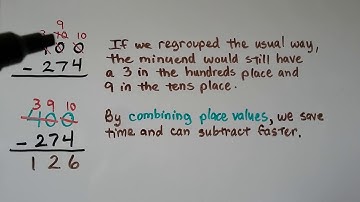 9
10 10
00
- 274
If we regrouped the usual way,
the minuend would still have
a 3 in the hundreds place and
9 in the tens place.
3 9 10
400
- 274
126
By combining place values, we save
time and can subtract faster.